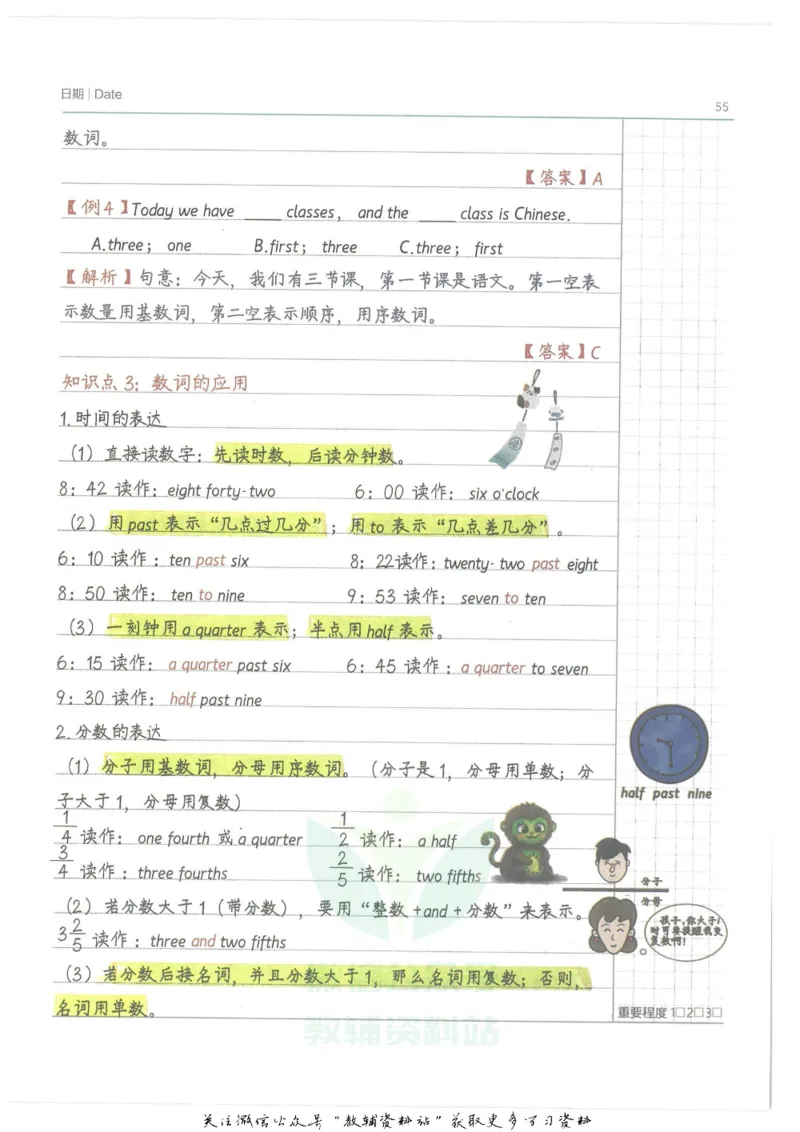 日期 | Date
55
数词。
【答案】A
【例4】Today we have ____ classes, and the ____ class is Chinese.
A.three; one B.first; three C.three; first
【解析】句意：今天，我们有三节课，第一节课是语文。第一空表
示数量用基数词，第二空表示顺序，用序数词。
【答案】C
知识点3：数词的应用
1.时间的表达
（1）直接读数字：先读时数，后读分钟数。
8：42 读作：eight forty-two 6：00 读作：six o'clock
（2）用past 表示“几点过几分”；用to 表示“几点差几分”。
6：10 读作：ten past six 8：22读作：twenty-two past eight
8：50 读作：ten to nine 9：53 读作：seven to ten
（3）一刻钟用a quarter 表示；半点用half 表示。
6：15 读作：a quarter past six 6：45 读作：a quarter to seven
9：30 读作：half past nine
2.分数的表达
（1）分子用基数词，分母用序数词。（分子是1，分母用单数；分
half past nine
子大于1，分母用复数）
1/4 读作：one fourth 或a quarter 1/2 读作：a half
3/4 读作：three fourths 2/5 读作：two fifths
分子
分母
（2）若分数大于1（带分数），要用“整数+and+分数”来表示。
孩子,你大于1
时可要提醒我变
复数啊!
3 2/5 读作：three and two fifths
（3）若分数后接名词，并且分数大于1，那么名词用复数；否则，
名词用单数。
重要程度 1□2□3□
教辅资料站
关注微信公众号“教辅资料站”获取更多学习资料